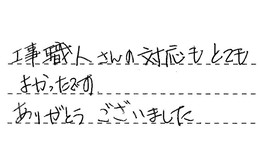 工事職人さんの対応もとても
よかったです。
ありがとうございました